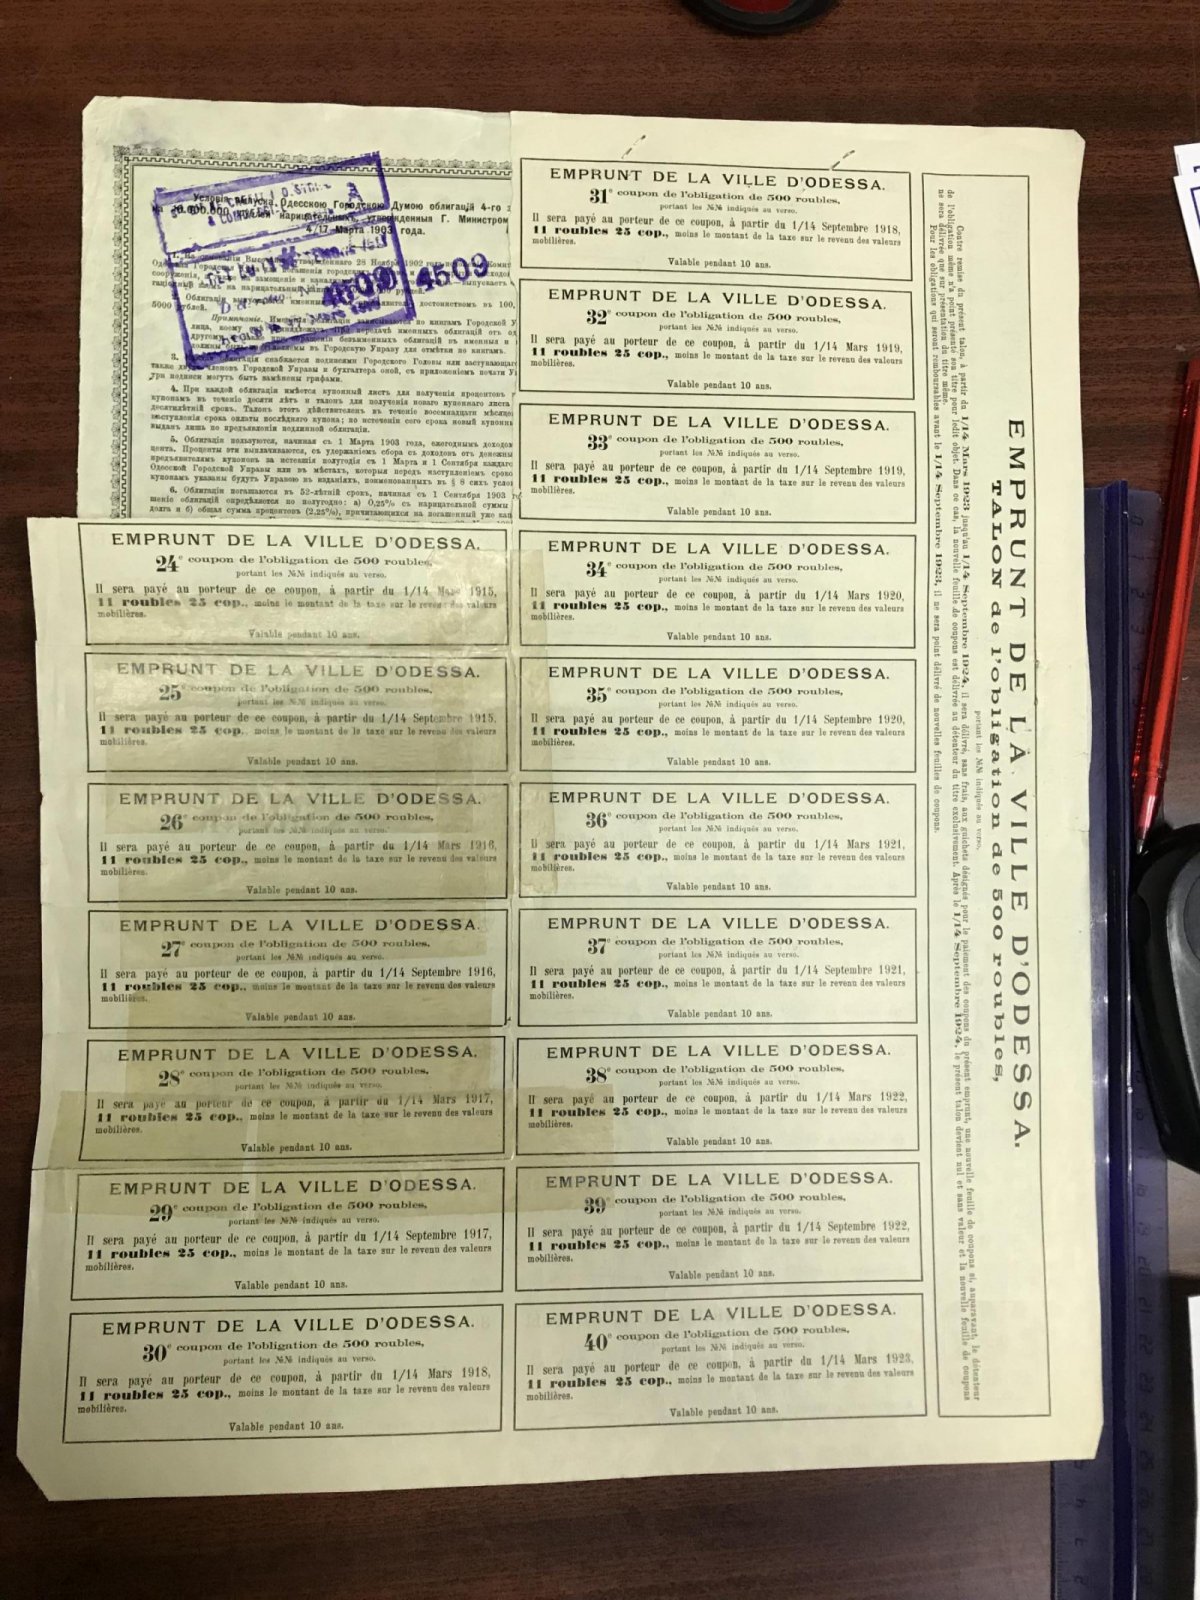 Условія выпуска Одесскою Городскою Думою облигацій 4-го
нарицательныхъ, утвержденныя Г. Министромъ
4/17 Марта 1903 года.
4509
4509
сооруженія,
Облигаціи
5000 рублей.
Примѣчаніе.
должны быть
въ Городскую Управу для отмѣтки по книгамъ.
3.
облигація снабжается подписями Городского Головы или заступающаг
также двухъ членовъ Городской Управы и бухгалтера оной, съ приложеніемъ печати У
три подписи могутъ быть замѣнены грифами.
4. При каждой облигаціи имѣется купонный листъ для полученія процентовъ
купонамъ въ теченіе десяти лѣтъ и талонъ для полученія новаго купоннаго листа
десятилѣтній срокъ. Талонъ этотъ дѣйствителенъ въ теченіе восемнадцати мѣсяцев
наступленія срока оплаты послѣдняго купона; по истеченіи сего срока новый купонны
выданъ лишь по предъявленіи подлинной облигаціи.
5. Облигаціи пользуются, начиная съ 1 Марта 1903 года, ежегоднымъ доходом
цента. Проценты эти выплачиваются, съ удержаніемъ сбора съ доходовъ отъ денежны
предъявителямъ купоновъ за истекшія полугодія съ 1 Марта и 1 Сентября каждаго
Одесской Городской Управы или въ мѣстахъ, которыя передъ наступленіемъ сроко
купонамъ указаны будутъ Управою въ изданіяхъ, поименованныхъ въ § 8 сихъ усло
6. Облигаціи погашаются въ 52-лѣтній срокъ, начиная съ 1 Сентября 1903
шеніе облигацій опредѣляется по полугодно: а) 0,25% съ нарицательной суммы
долга и б) общая сумма процентовъ (2.25%), причитающихся на погашенный уже кап
EMPRUNT DE LA VILLE D'ODESSA.
24e coupon de l'obligation de 500 roubles,
portant les №№ indiqués au verso.
Il sera payé au porteur de ce coupon, à partir du 1/14 Mars 1915,
11 roubles 25 cop., moins le montant de la taxe sur le revenu des valeurs
mobilières.
Valable pendant 10 ans.
EMPRUNT DE LA VILLE D'ODESSA.
25e coupon de l'obligation de 500 roubles,
portant les №№ indiqués au verso.
Il sera payé au porteur de ce coupon, à partir du 1/14 Septembre 1915,
11 roubles 25 cop., moins le montant de la taxe sur le revenu des valeurs
mobilières.
Valable pendant 10 ans.
EMPRUNT DE LA VILLE D'ODESSA.
26e coupon de l'obligation de 500 roubles,
portant les №№ indiqués au verso.
Il sera payé au porteur de ce coupon, à partir du 1/14 Mars 1916,
11 roubles 25 cop., moins le montant de la taxe sur le revenu des valeurs
mobilières.
Valable pendant 10 ans.
EMPRUNT DE LA VILLE D'ODESSA.
27e coupon de l'obligation de 500 roubles,
portant les №№ indiqués au verso.
Il sera payé au porteur de ce coupon, à partir du 1/14 Septembre 1916,
11 roubles 25 cop., moins le montant de la taxe sur le revenu des valeurs
mobilières.
Valable pendant 10 ans.
EMPRUNT DE LA VILLE D'ODESSA.
28e coupon de l'obligation de 500 roubles,
portant les №№ indiqués au verso.
Il sera payé au porteur de ce coupon, à partir du 1/14 Mars 1917,
11 roubles 25 cop., moins le montant de la taxe sur le revenu des valeurs
mobilières.
Valable pendant 10 ans.
EMPRUNT DE LA VILLE D'ODESSA.
29e coupon de l'obligation de 500 roubles,
portant les №№ indiqués au verso.
Il sera payé au porteur de ce coupon, à partir du 1/14 Septembre 1917,
11 roubles 25 cop., moins le montant de la taxe sur le revenu des valeurs
mobilières.
Valable pendant 10 ans.
EMPRUNT DE LA VILLE D'ODESSA.
30e coupon de l'obligation de 500 roubles,
portant les №№ indiqués au verso.
Il sera payé au porteur de ce coupon, à partir du 1/14 Mars 1918,
11 roubles 25 cop., moins le montant de la taxe sur le revenu des valeurs
mobilières.
Valable pendant 10 ans.
EMPRUNT DE LA VILLE D'ODESSA.
31e coupon de l'obligation de 500 roubles,
portant les №№ indiqués au verso.
Il sera payé au porteur de ce coupon, à partir du 1/14 Septembre 1918,
11 roubles 25 cop., moins le montant de la taxe sur le revenu des valeurs
mobilières.
Valable pendant 10 ans.
EMPRUNT DE LA VILLE D'ODESSA.
32e coupon de l'obligation de 500 roubles,
portant les №№ indiqués au verso.
Il sera payé au porteur de ce coupon, à partir du 1/14 Mars 1919,
11 roubles 25 cop., moins le montant de la taxe sur le revenu des valeurs
mobilières.
Valable pendant 10 ans.
EMPRUNT DE LA VILLE D'ODESSA.
33e coupon de l'obligation de 500 roubles,
portant les №№ indiqués au verso.
Il sera payé au porteur de ce coupon, à partir du 1/14 Septembre 1919,
11 roubles 25 cop., moins le montant de la taxe sur le revenu des valeurs
mobilières.
Valable pendant 10 ans.
EMPRUNT DE LA VILLE D'ODESSA.
34e coupon de l'obligation de 500 roubles,
portant les №№ indiqués au verso.
Il sera payé au porteur de ce coupon, à partir du 1/14 Mars 1920,
11 roubles 25 cop., moins le montant de la taxe sur le revenu des valeurs
mobilières.
Valable pendant 10 ans.
EMPRUNT DE LA VILLE D'ODESSA.
35e coupon de l'obligation de 500 roubles,
portant les №№ indiqués au verso.
Il sera payé au porteur de ce coupon, à partir du 1/14 Septembre 1920,
11 roubles 25 cop., moins le montant de la taxe sur le revenu des valeurs
mobilières.
Valable pendant 10 ans.
EMPRUNT DE LA VILLE D'ODESSA.
36e coupon de l'obligation de 500 roubles,
portant les №№ indiqués au verso.
Il sera payé au porteur de ce coupon, à partir du 1/14 Mars 1921,
11 roubles 25 cop., moins le montant de la taxe sur le revenu des valeurs
mobilières.
Valable pendant 10 ans.
EMPRUNT DE LA VILLE D'ODESSA.
37e coupon de l'obligation de 500 roubles,
portant les №№ indiqués au verso.
Il sera payé au porteur de ce coupon, à partir du 1/14 Septembre 1921,
11 roubles 25 cop., moins le montant de la taxe sur le revenu des valeurs
mobilières.
Valable pendant 10 ans.
EMPRUNT DE LA VILLE D'ODESSA.
38e coupon de l'obligation de 500 roubles,
portant les №№ indiqués au verso.
Il sera payé au porteur de ce coupon, à partir du 1/14 Mars 1922,
11 roubles 25 cop., moins le montant de la taxe sur le revenu des valeurs
mobilières.
Valable pendant 10 ans.
EMPRUNT DE LA VILLE D'ODESSA.
39e coupon de l'obligation de 500 roubles,
portant les №№ indiqués au verso.
Il sera payé au porteur de ce coupon, à partir du 1/14 Septembre 1922,
11 roubles 25 cop., moins le montant de la taxe sur le revenu des valeurs
mobilières.
Valable pendant 10 ans.
EMPRUNT DE LA VILLE D'ODESSA.
40e coupon de l'obligation de 500 roubles,
portant les №№ indiqués au verso.
Il sera payé au porteur de ce coupon, à partir du 1/14 Mars 1923,
11 roubles 25 cop., moins le montant de la taxe sur le revenu des valeurs
mobilières.
Valable pendant 10 ans.
EMPRUNT DE LA VILLE D'ODESSA.
TALON de l'obligation de 500 roubles,
portant les №№ indiqués au verso.
Contre remise du présent talon, à partir du 1/14 Mars 1923 jusqu'au 1/14 Septembre 1924, il sera délivré, sans frais, aux guichets désignés pour le paiement des coupons du présent emprunt, une nouvelle feuille de coupons si, auparavant, le détenteur
de l'obligation même n'a point présenté son titre pour ledit objet. Dans ce cas, la nouvelle feuille de coupons est délivrée au détenteur du titre exclusivement. Après le 1/14 Septembre 1924, le présent talon devient nul et sans valeur et la nouvelle feuille de coupons
ne sera délivrée que sur présentation du titre même.
Pour les obligations qui seront remboursables avant le 1/14 Septembre 1923, il ne sera point délivré de nouvelles feuilles de coupons.